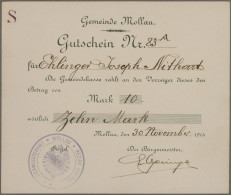 S
Gemeinde Mollau.
Gutschein Nr. 23 A
für Ehlinger Joseph Nithart
Die Gemeindekasse zahlt an den Vorzeiger dieses den
Betrag von
Mark 10
wörtlich Zehn Mark
Mollau, den 30 November
Der Bürgermeister,
Siegel